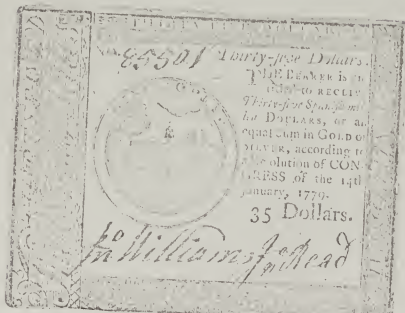 85501 Thirty-five Dollars.
THE BEARER is en-
titled to RECEIVE
Thirty-five Spanish mil-
led DOLLARS, or an
equal Sum in GOLD or
SILVER, according to
a Resolution of CON-
GRESS of the 14th
January, 1779.
35 Dollars.
Jno Williams Jno Read